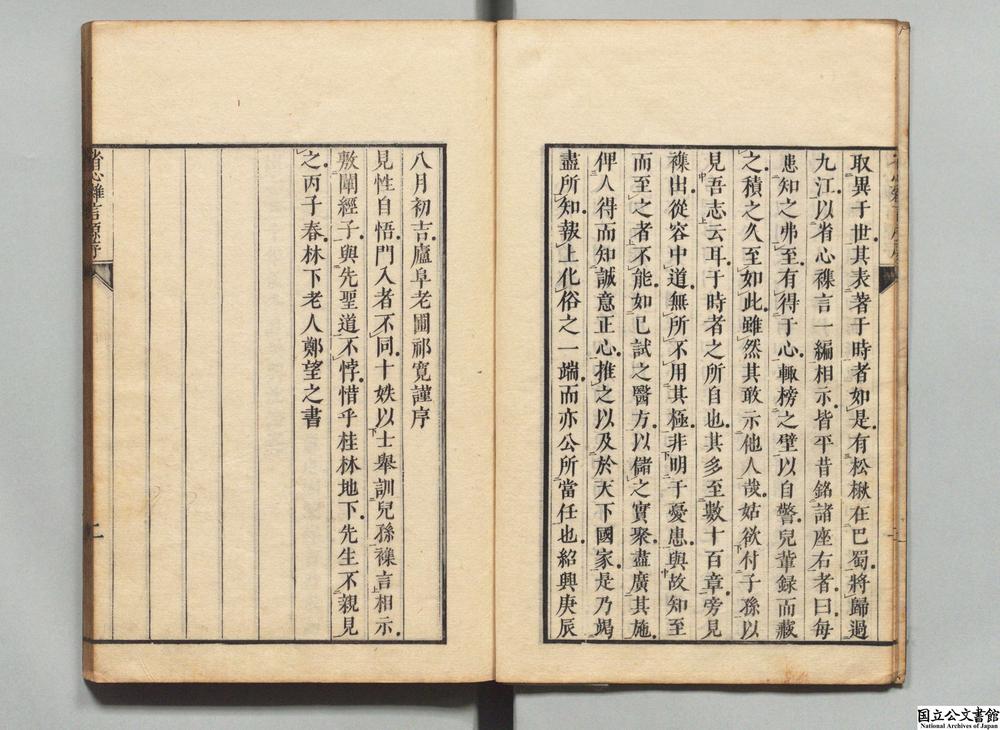 取異于世其表著于時者如是有松楸在巴蜀將歸過
九江以省心襍言一編相示皆平昔銘諸座右者曰每
患知之弗至有得于心輙榜之壁以自警兒輩録而藏
之積之久至如此雖然其敢示他人哉姑欲付子孫以
見吾志云耳于時者之所自也其多至數十百章旁見
襍出從容中道無所不用其極非明于憂患與故知至
而至之者不能如已試之醫方以儲之實聚盡廣其施
俾人得而知誠意正心推之以及於天下國家是乃竭
盡所知報上化俗之一端而亦公所當任也紹興庚辰
八月初吉廬阜老圃祁寬謹序
見性自悟門入者不同十姝以士舉訓兒孫襍言相示
敷闡經子與先聖道不悖惜乎桂林地下先生不親見
之丙子春林下老人鄭望之書
省心雜言
二
国立公文書館
National Archives of Japan